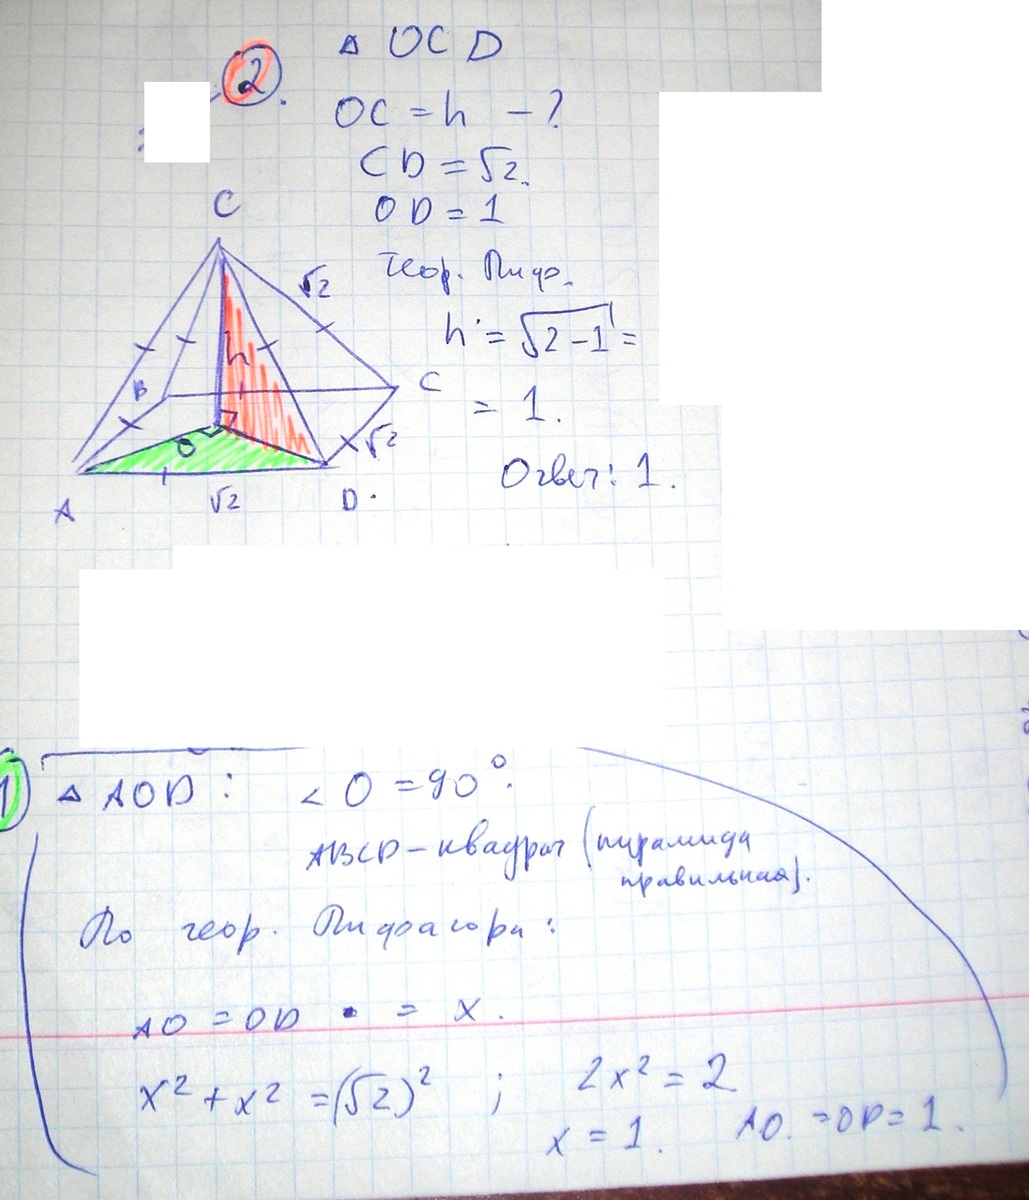 2.
△ OCD
OC = h - ?
CD = √2.
OD = 1
Теор. Пифо.
h = √2-1 =
= 1.
Ответ: 1.
C
√2
h
B
C
O
√2
A
√2
D.
1
△ AOD : < O = 90°.
ABCD - квадрат (пирамида
правильная).
По теор. Пифагора:
AO = OD = x.
x² + x² = (√2)² ; 2x² = 2
x = 1. AO. = OD = 1.